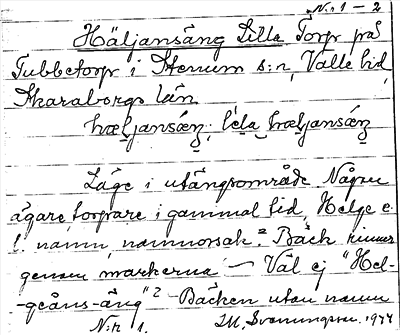 N:r 1 – 2
Häljansäng Lilla Torp på
Tubbetorp i Stenum s:n, Valle hd
Skaraborgs län
hæljansæŋ, lila hæljansæŋ
Läge i utängsområde. Någon
ägare, torpare i gammal tid, Helge e.
l. namn, namnorsak? Bäck rinner
genom markerna – Väl ej "Hel-
-geåns-äng"? Bäcken utan namn
N:r 1. 1944